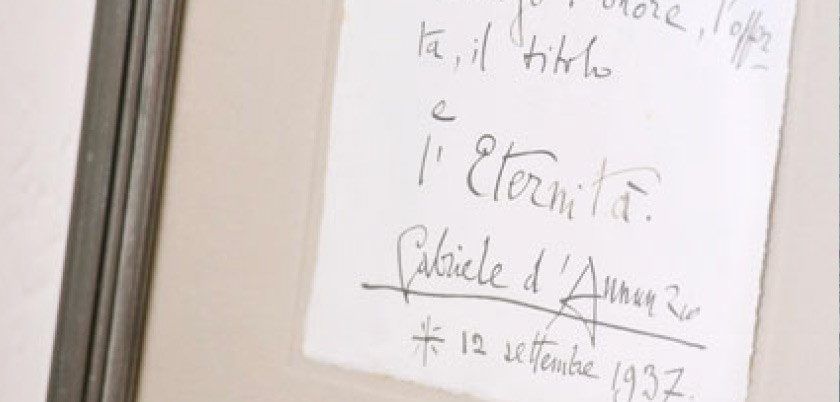 onore, l'offer
ta, il titolo
e
l'Eternità.
Gabriele d'Annunzio
* 12 settembre 1937.